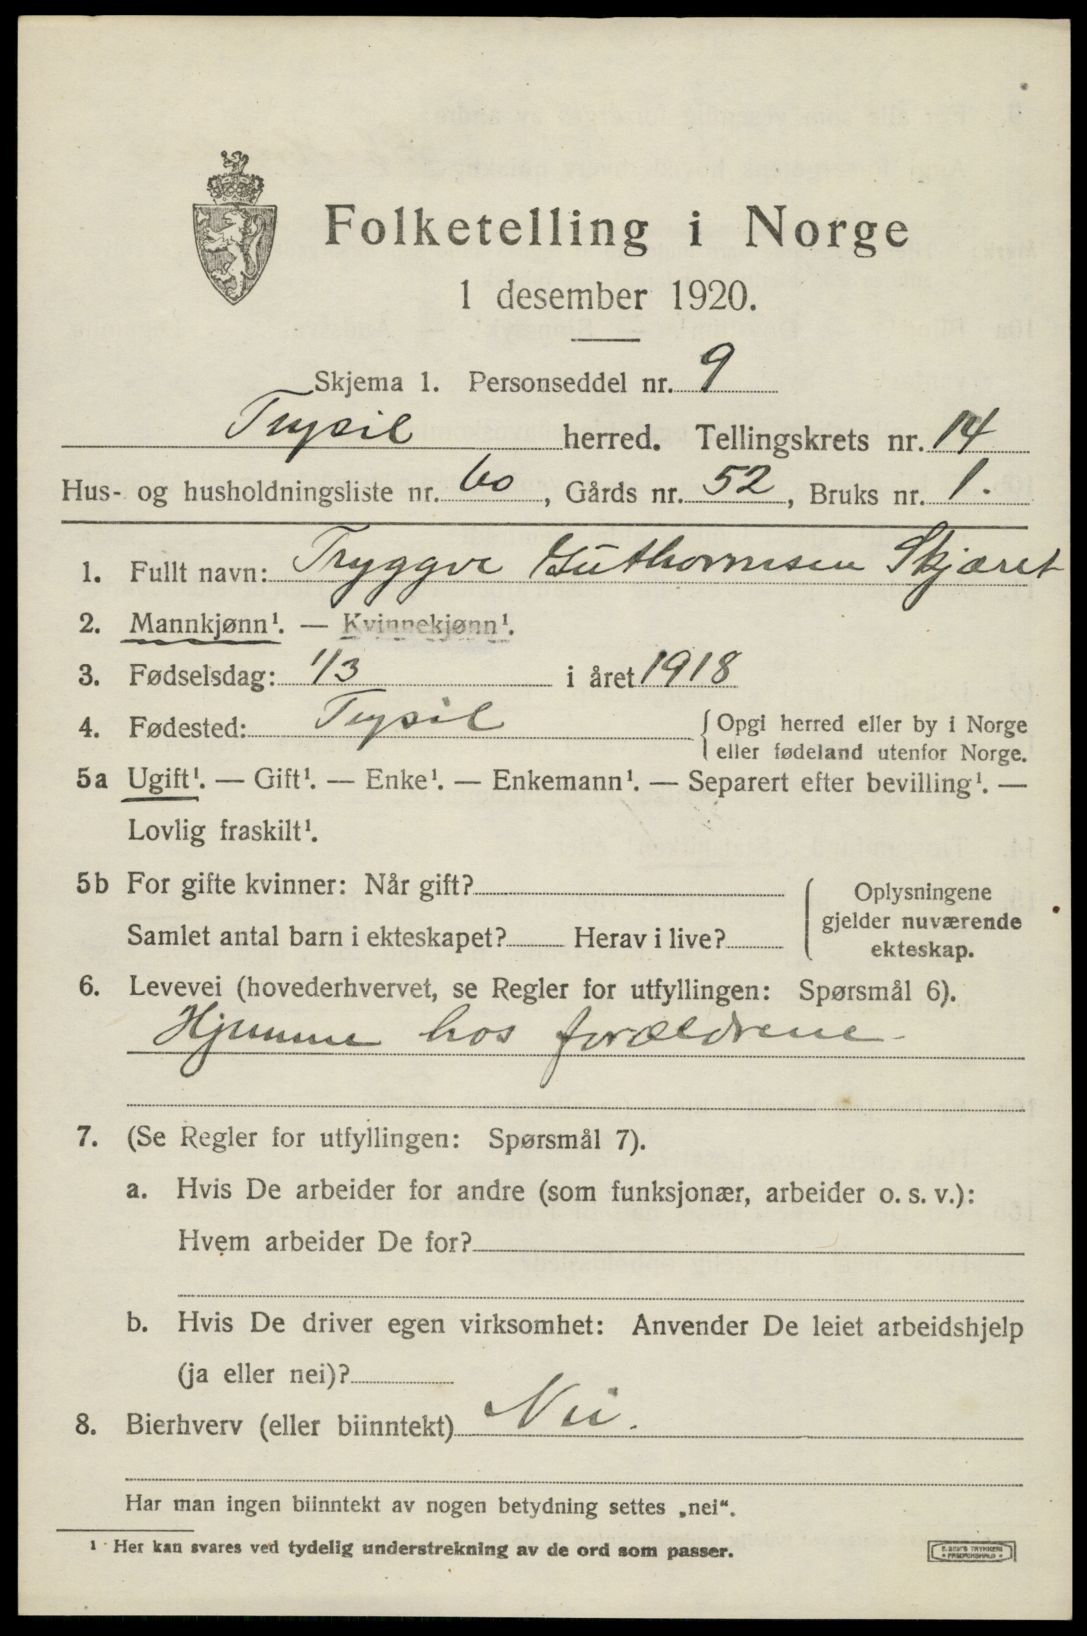 Folketelling i Norge
1 desember 1920.
Skjema 1. Personseddel nr. 9
Trysil herred. Tellingskrets nr. 14
Hus- og husholdningsliste nr. 60, Gårds nr. 52, Bruks nr. 1.
1. Fullt navn: Tryggve Guthormsen Skjæret
2. Mannkjønn¹. — Kvinnekjønn¹.
3. Fødselsdag: 1/3 i året 1918
4. Fødested: Trysil {Opgi herred eller by i Norge
eller fødeland utenfor Norge.
5a Ugift¹. — Gift¹. — Enke¹. — Enkemann¹. — Separert efter bevilling¹. —
Lovlig fraskilt¹.
5b For gifte kvinner: Når gift?
Samlet antal barn i ekteskapet? Herav i live?
{Oplysningene
gjelder nuværende
ekteskap.
6. Levevei (hovederhvervet, se Regler for utfyllingen: Spørsmål 6).
Hjemme hos forældrene.
7. (Se Regler for utfyllingen: Spørsmål 7).
a. Hvis De arbeider for andre (som funksjonær, arbeider o. s. v.):
Hvem arbeider De for?
b. Hvis De driver egen virksomhet: Anvender De leiet arbeidshjelp
(ja eller nei)?
8. Bierhverv (eller biinntekt) Nei.
Har man ingen biinntekt av nogen betydning settes „nei“.
¹ Her kan svares ved tydelig understrekning av de ord som passer.